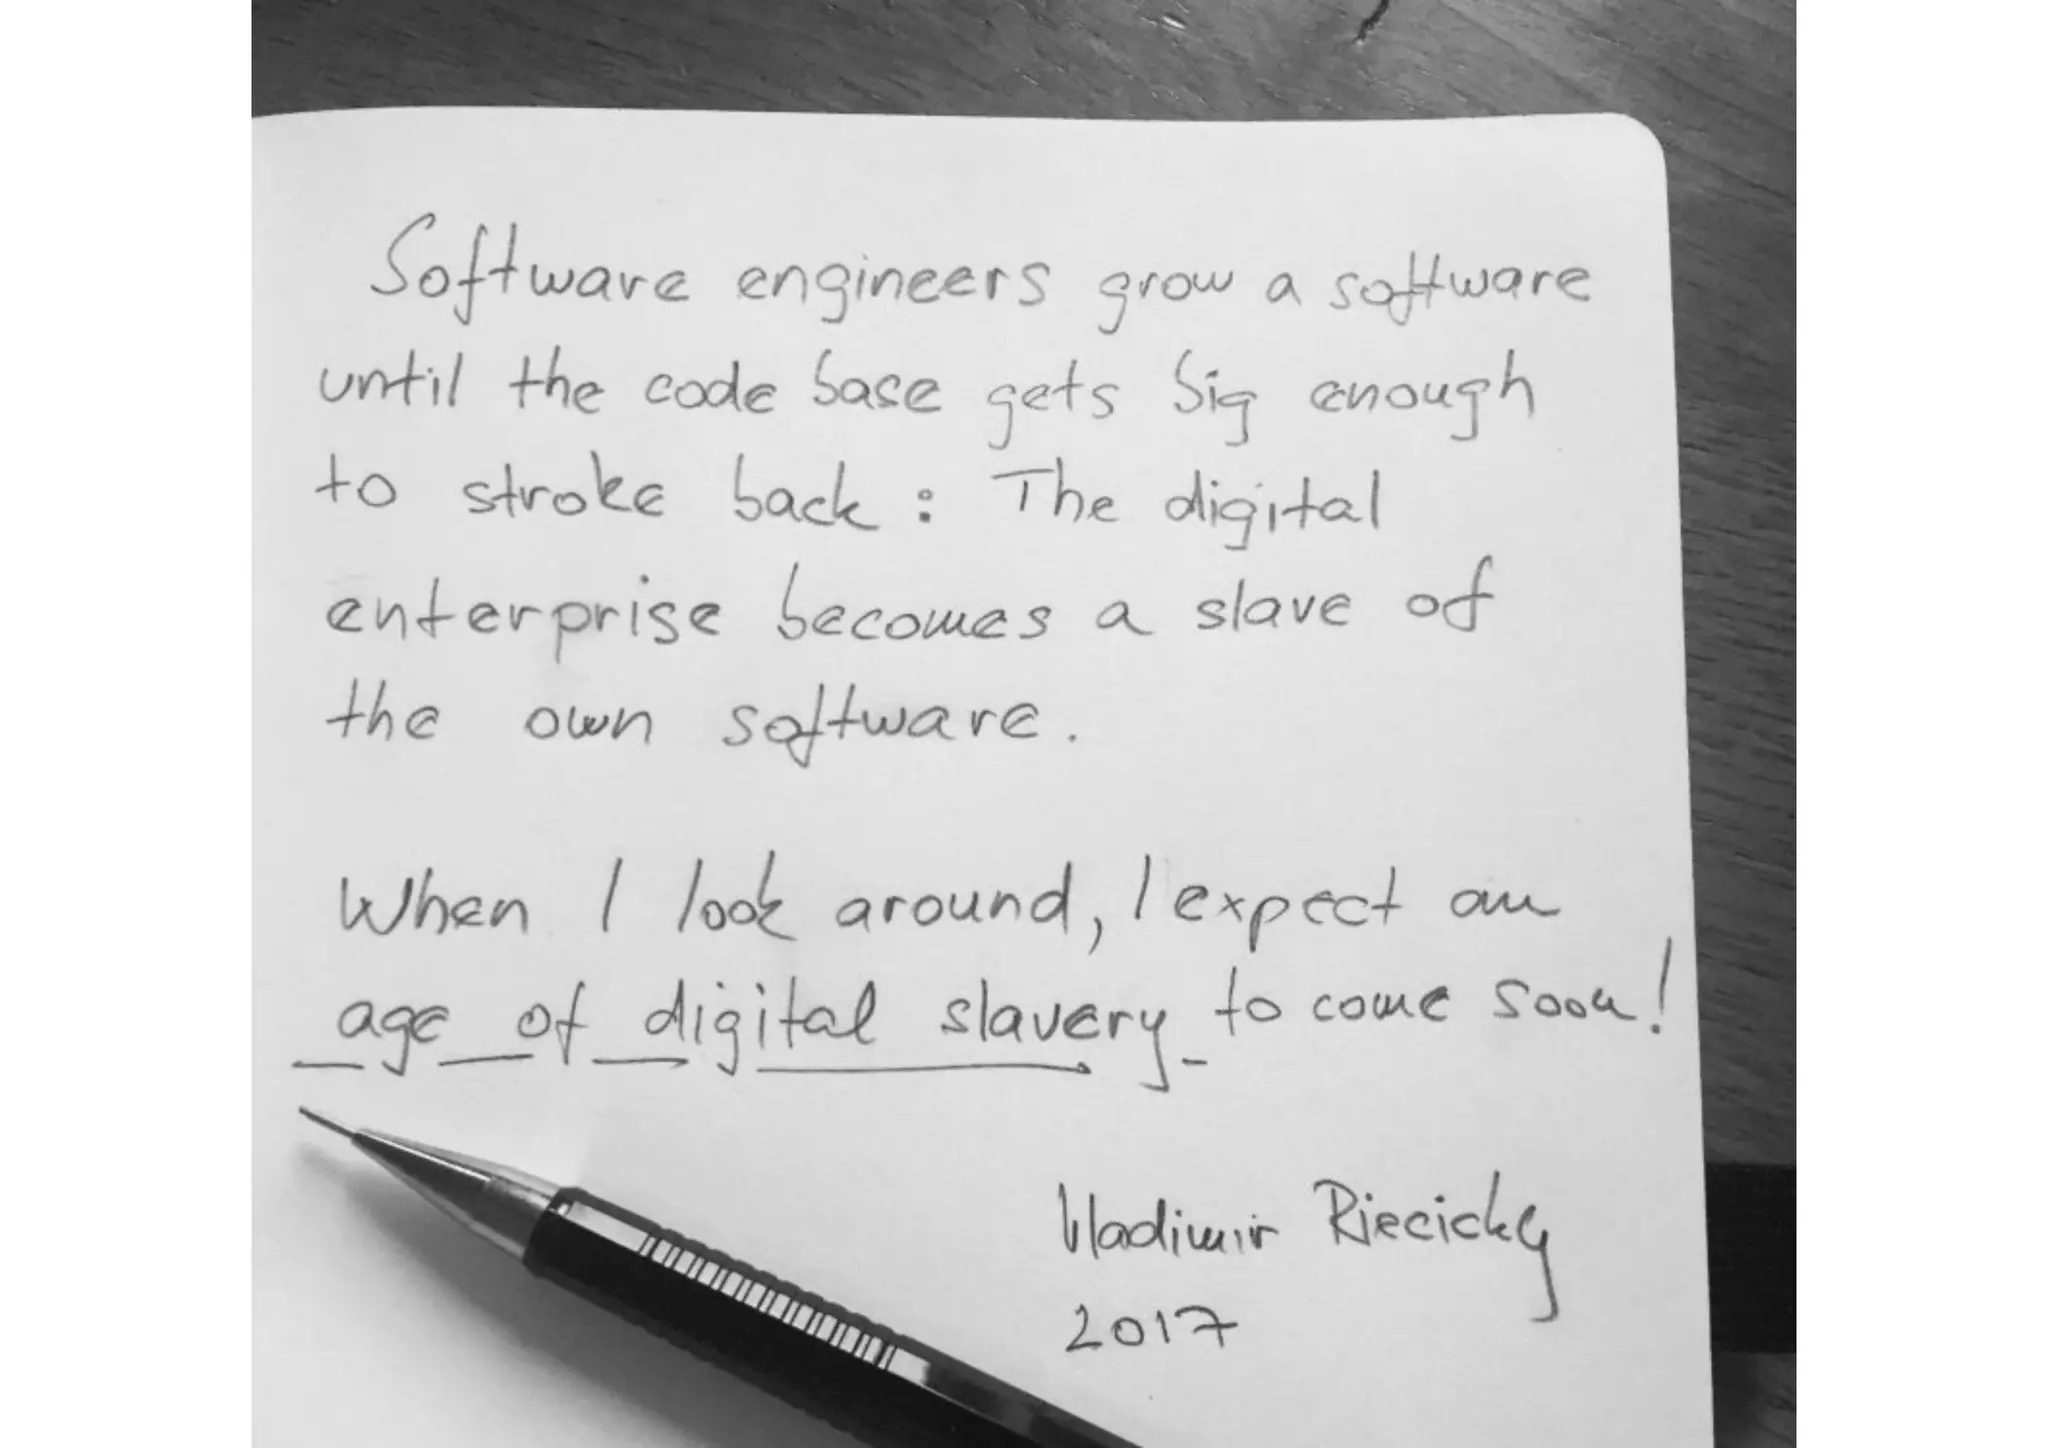 Software engineers grow a software
until the code base gets big enough
to stroke back: The digital
enterprise becomes a slave of
the own software.
When I look around, I expect an
age of digital slavery to come soon!
Vladimir Riecicky
2017